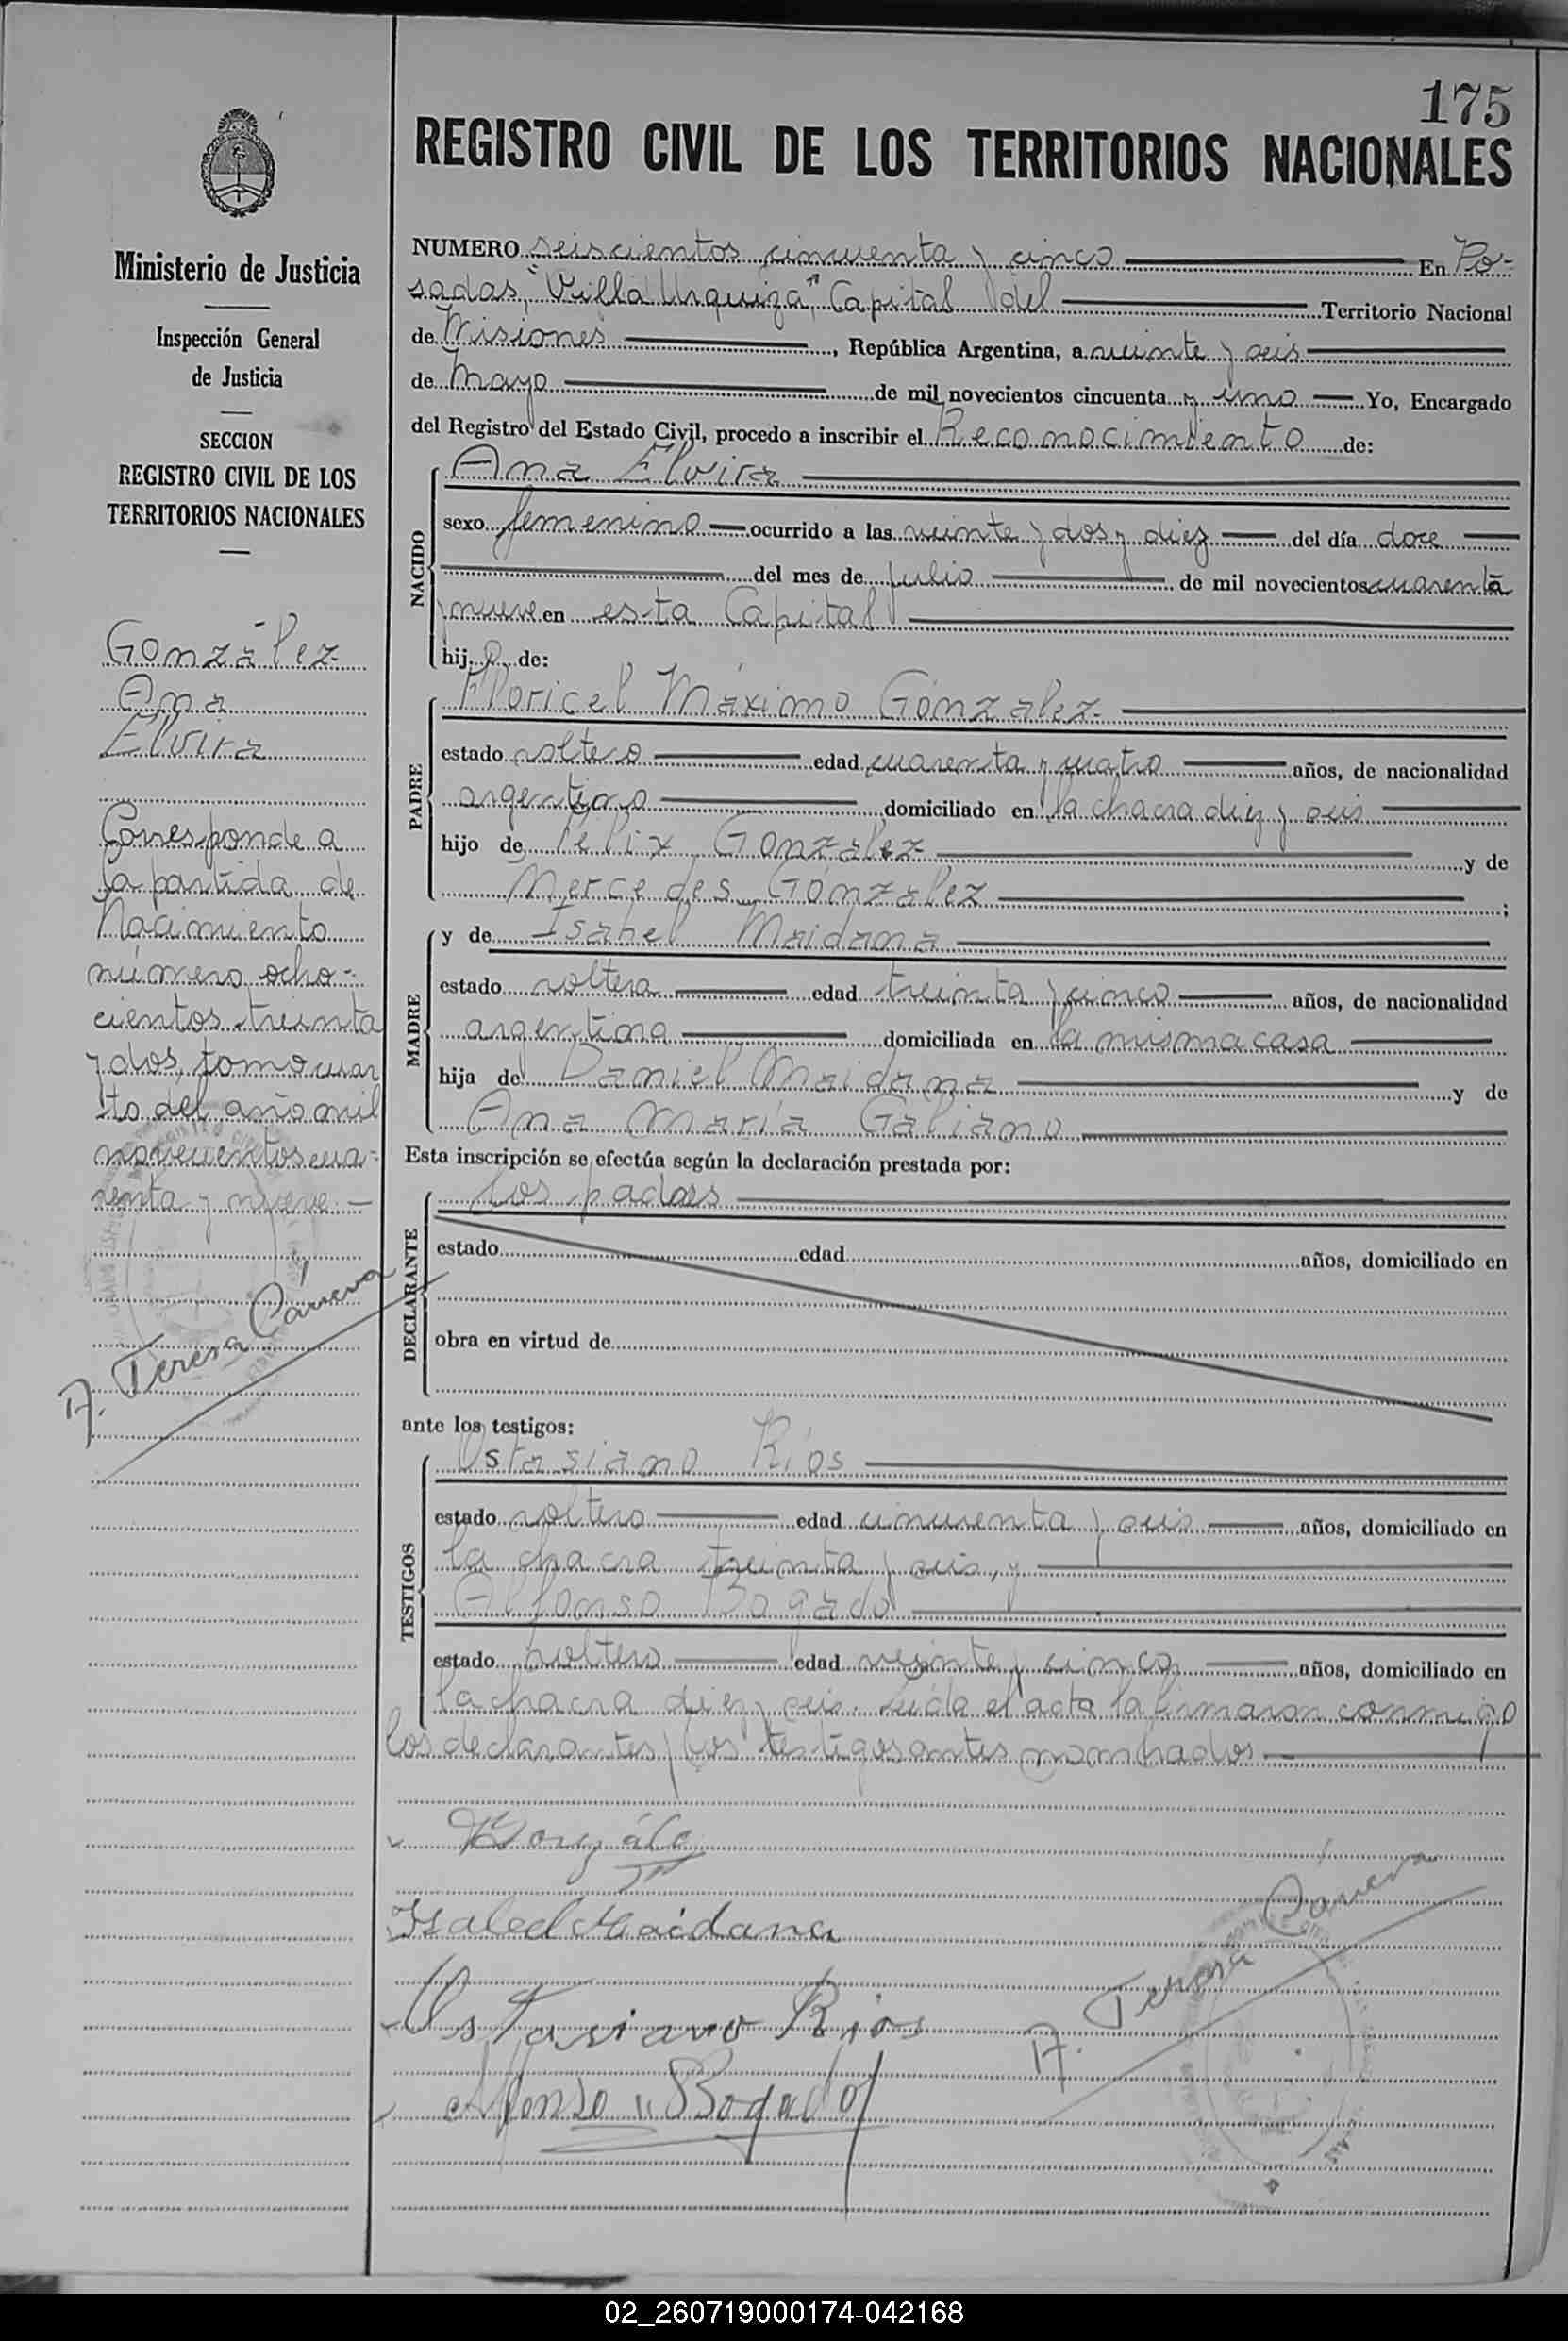 175
REGISTRO CIVIL DE LOS TERRITORIOS NACIONALES
Ministerio de Justicia
Inspección General
de Justicia
SECCION
REGISTRO CIVIL DE LOS
TERRITORIOS NACIONALES
González
Ana
Elvira
Corresponde a
la partida de
Nacimiento
número ocho-
cientos treinta
y dos, tomo cuar
to del año mil
novecientos cua-
renta y nueve.
A. Teresa Cáneva
NUMERO seiscientos cincuenta y cinco En Po-
sadas, "Villa Urquiza", Capital del Territorio Nacional
de Misiones, República Argentina, a veinte y seis
de Mayo de mil novecientos cincuenta y uno Yo, Encargado
del Registro del Estado Civil, procedo a inscribir el Reconocimiento de:
NACIDO
Ana Elvira
sexo femenino ocurrido a las veinte y dos y diez del día doce
del mes de julio de mil novecientos cuarenta
y nueve en esta Capital
hija de:
PADRE
Floricel Máximo González
estado soltero edad cuarenta y cuatro años, de nacionalidad
argentino domiciliado en la chacra diez y seis
hijo de Félix González y de
Mercedes González ;
MADRE
y de Isabel Maidana
estado soltera edad treinta y cinco años, de nacionalidad
argentina domiciliada en la misma casa
hija de Daniel Maidana y de
Ana María Galiano
Esta inscripción se efectúa según la declaración prestada por:
DECLARANTE
los padres
estado edad años, domiciliado en
obra en virtud de
ante los testigos:
TESTIGOS
Ustasiano Ríos
estado soltero edad cincuenta y seis años, domiciliado en
la chacra treinta y seis, y
Alfonso Bogado
estado soltero edad veinte y cinco años, domiciliado en
la chacra diez y seis. Leída el acta la firmaron conmigo
los declarantes y los testigos antes nombrados.
Gonzále
Isabel Maidana
Ustasiano Rios
Alfonso Bogado
A. Teresa Cáneva
02_260719000174-042168